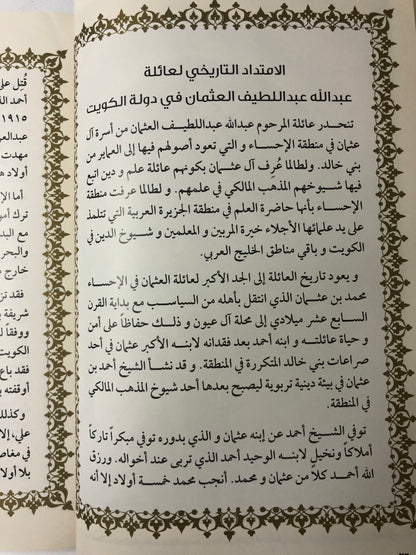 الامتداد التاريخي لعائلة
عبدالله عبداللطيف العثمان في دولة الكويت
تنحدر عائلة المرحوم عبدالله عبداللطيف العثمان من أسرة آل
عثمان في منطقة الإحساء و التي تعود أصولهم فيها إلى العماير من
بني خالد. ولطالما عُرف آل عثمان بكونهم عائلة علم و دين اتبع
فيها شيوخهم المذهب المالكي في علمهم. و لطالما عرفت منطقة
الإحساء بأنها حاضرة العلم في منطقة الجزيرة العربية التي تتلمذ
على يد علمائها الأجلاء خيرة المربين و المعلمين و شيوخ الدين في
الكويت و باقي مناطق الخليج العربي.
و يعود تاريخ العائلة إلى الجد الأكبر لعائلة العثمان في الإحساء
محمد بن عثمان الذي انتقل بأهله من السياسب مع بداية القرن
السابع عشر ميلادي إلى محلة آل عيون و ذلك حفاظاً على أمن
و حياة عائلته و ابنه أحمد بعد فقدانه لابنه الأكبر عثمان في أحد
صراعات بني خالد المتكررة في المنطقة. و قد نشأ الشيخ أحمد بن
عثمان في بيئة دينية تربوية ليصبح بعدها أحد شيوخ المذهب المالكي
في المنطقة.
توفي الشيخ أحمد عن إبنه عثمان و الذي بدوره توفي مبكراً تاركاً
أملاكاً ونخيل لابنه الوحيد أحمد الذي تربى عند أخواله. ورزق
الله أحمد كلاً من عثمان و محمد. أنجب محمد خمسة أولاد إلا أنه
قُتِل على
أحمد الذ
١٩١٥
عبدالعز
مهدت
أولاد ه
أما الإ
ترك أمو
مع البد
والبحر
خارج
فقد تز
شريفة ب
ووفقاً ل
الكويت
فقد باع
أوقفته ب
وكذلك
علي، إلا
في مغاص
بلا أولاد